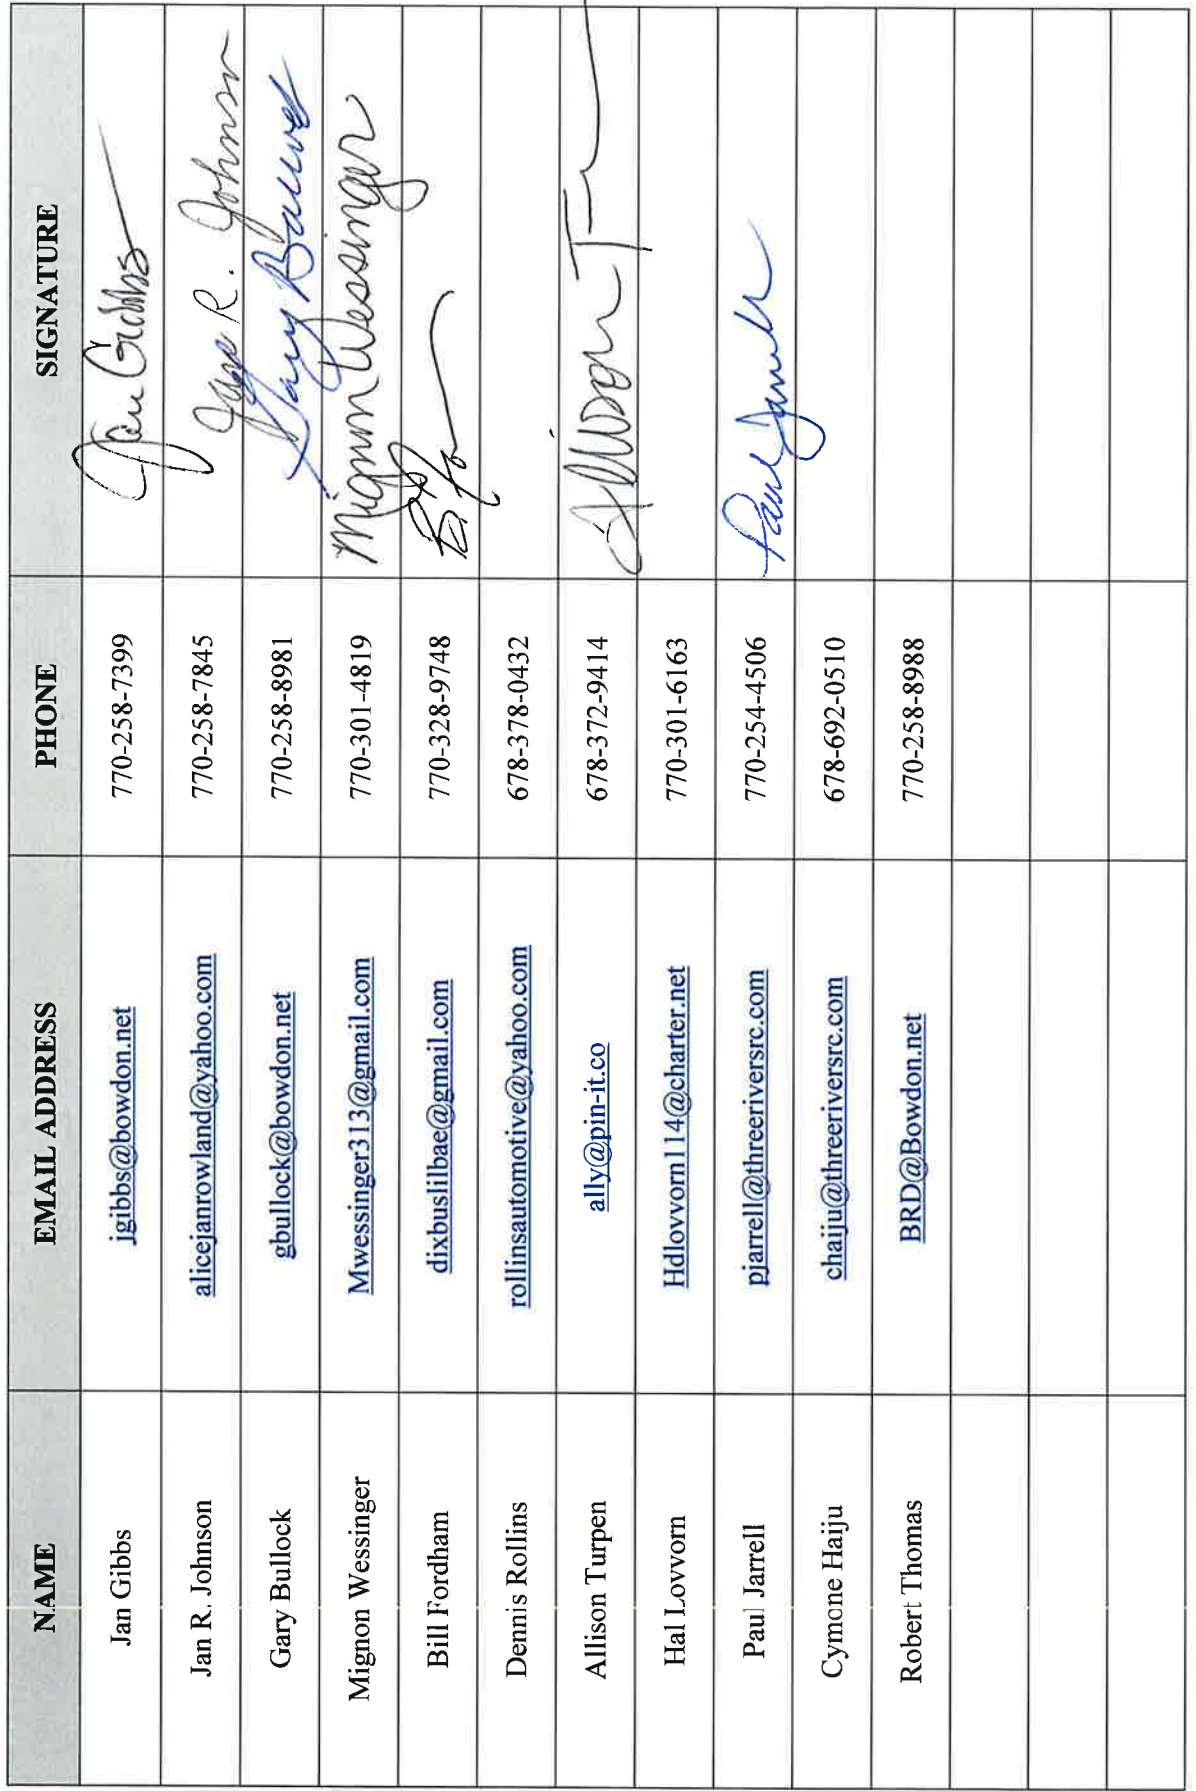 NAME EMAIL ADDRESS PHONE SIGNATURE
Jan Gibbs jgibbs@bowdon.net 770-258-7399 Jan Gibbs
Jan R. Johnson alicejanrowland@yahoo.com 770-258-7845 Jan R. Johnson
Gary Bullock gbullock@bowdon.net 770-258-8981 Gary Bullock
Mignon Wessinger Mwessinger313@gmail.com 770-301-4819 Mignon Wessinger
Bill Fordham dixbuslilbae@gmail.com 770-328-9748
Dennis Rollins rollinsautomotive@yahoo.com 678-378-0432
Allison Turpen ally@pin-it.co 678-372-9414 Allison
Hal Lovvorn Hdlovvorn114@charter.net 770-301-6163
Paul Jarrell pjarrell@threeriversrc.com 770-254-4506 Paul Jarrell
Cymone Haiju chaiju@threeriversrc.com 678-692-0510
Robert Thomas BRD@Bowdon.net 770-258-8988